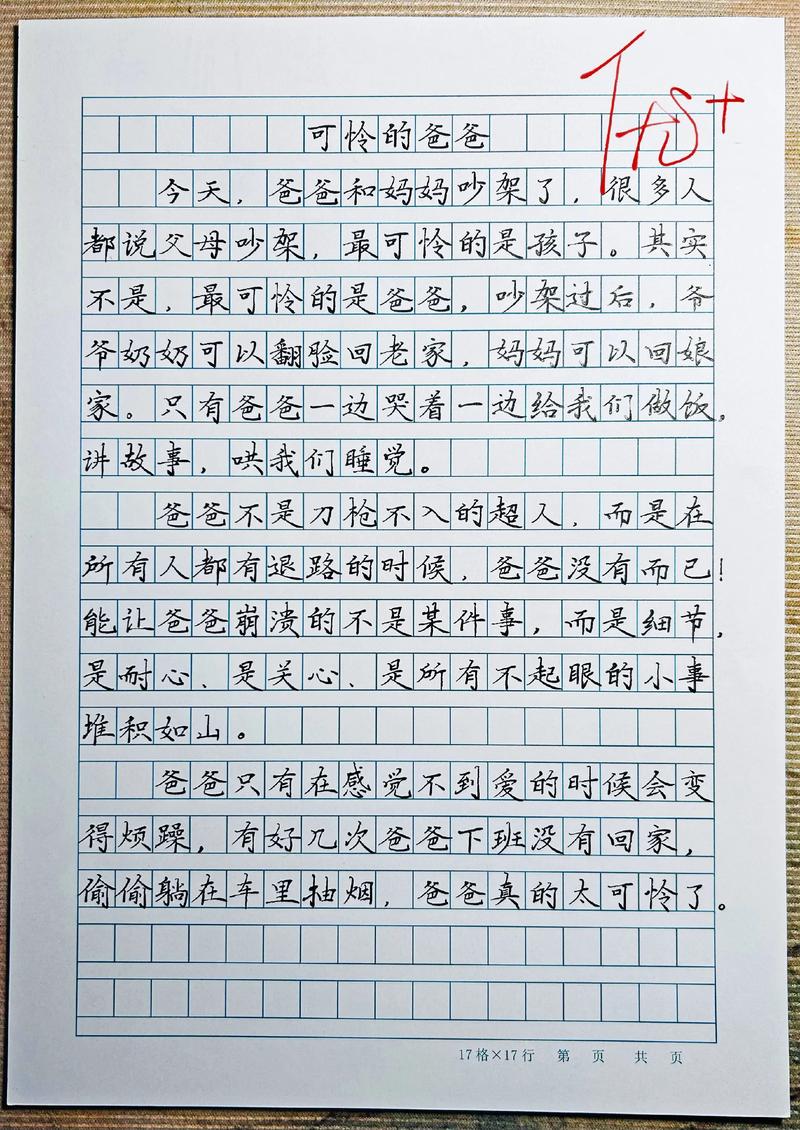 可怜的爸爸
今天，爸爸和妈妈吵架了，很多人
都说父母吵架，最可怜的是孩子。其实
不是，最可怜的是爸爸，吵架过后，爷
爷奶奶可以翻脸回老家，妈妈可以回娘
家。只有爸爸一边哭着一边给我们做饭，
讲故事，哄我们睡觉。
爸爸不是刀枪不入的超人，而是在
所有人都有退路的时候，爸爸没有而已！
能让爸爸崩溃的不是某件事，而是细节，
是耐心、是关心、是所有不起眼的小事
堆积如山。
爸爸只有在感觉不到爱的时候会变
得烦躁，有好几次爸爸下班没有回家，
偷偷躺在车里抽烟，爸爸真的太可怜了。
17格×17行 第 页 共 页